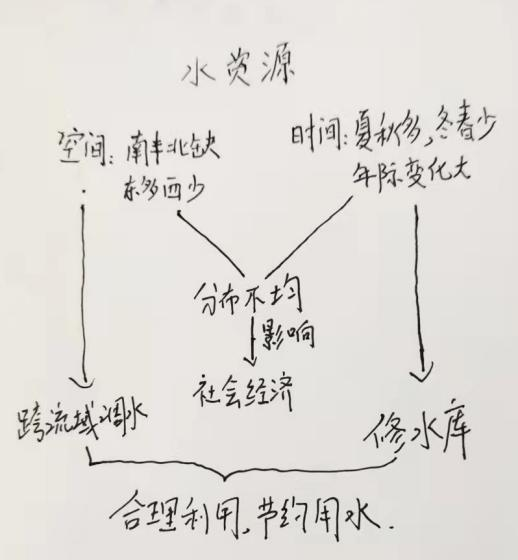 水资源
空间：南丰北缺
东多西少
时间：夏秋多，冬春少
年际变化大
分布不均
影响
社会经济
跨流域调水
修水库
合理利用，节约用水.